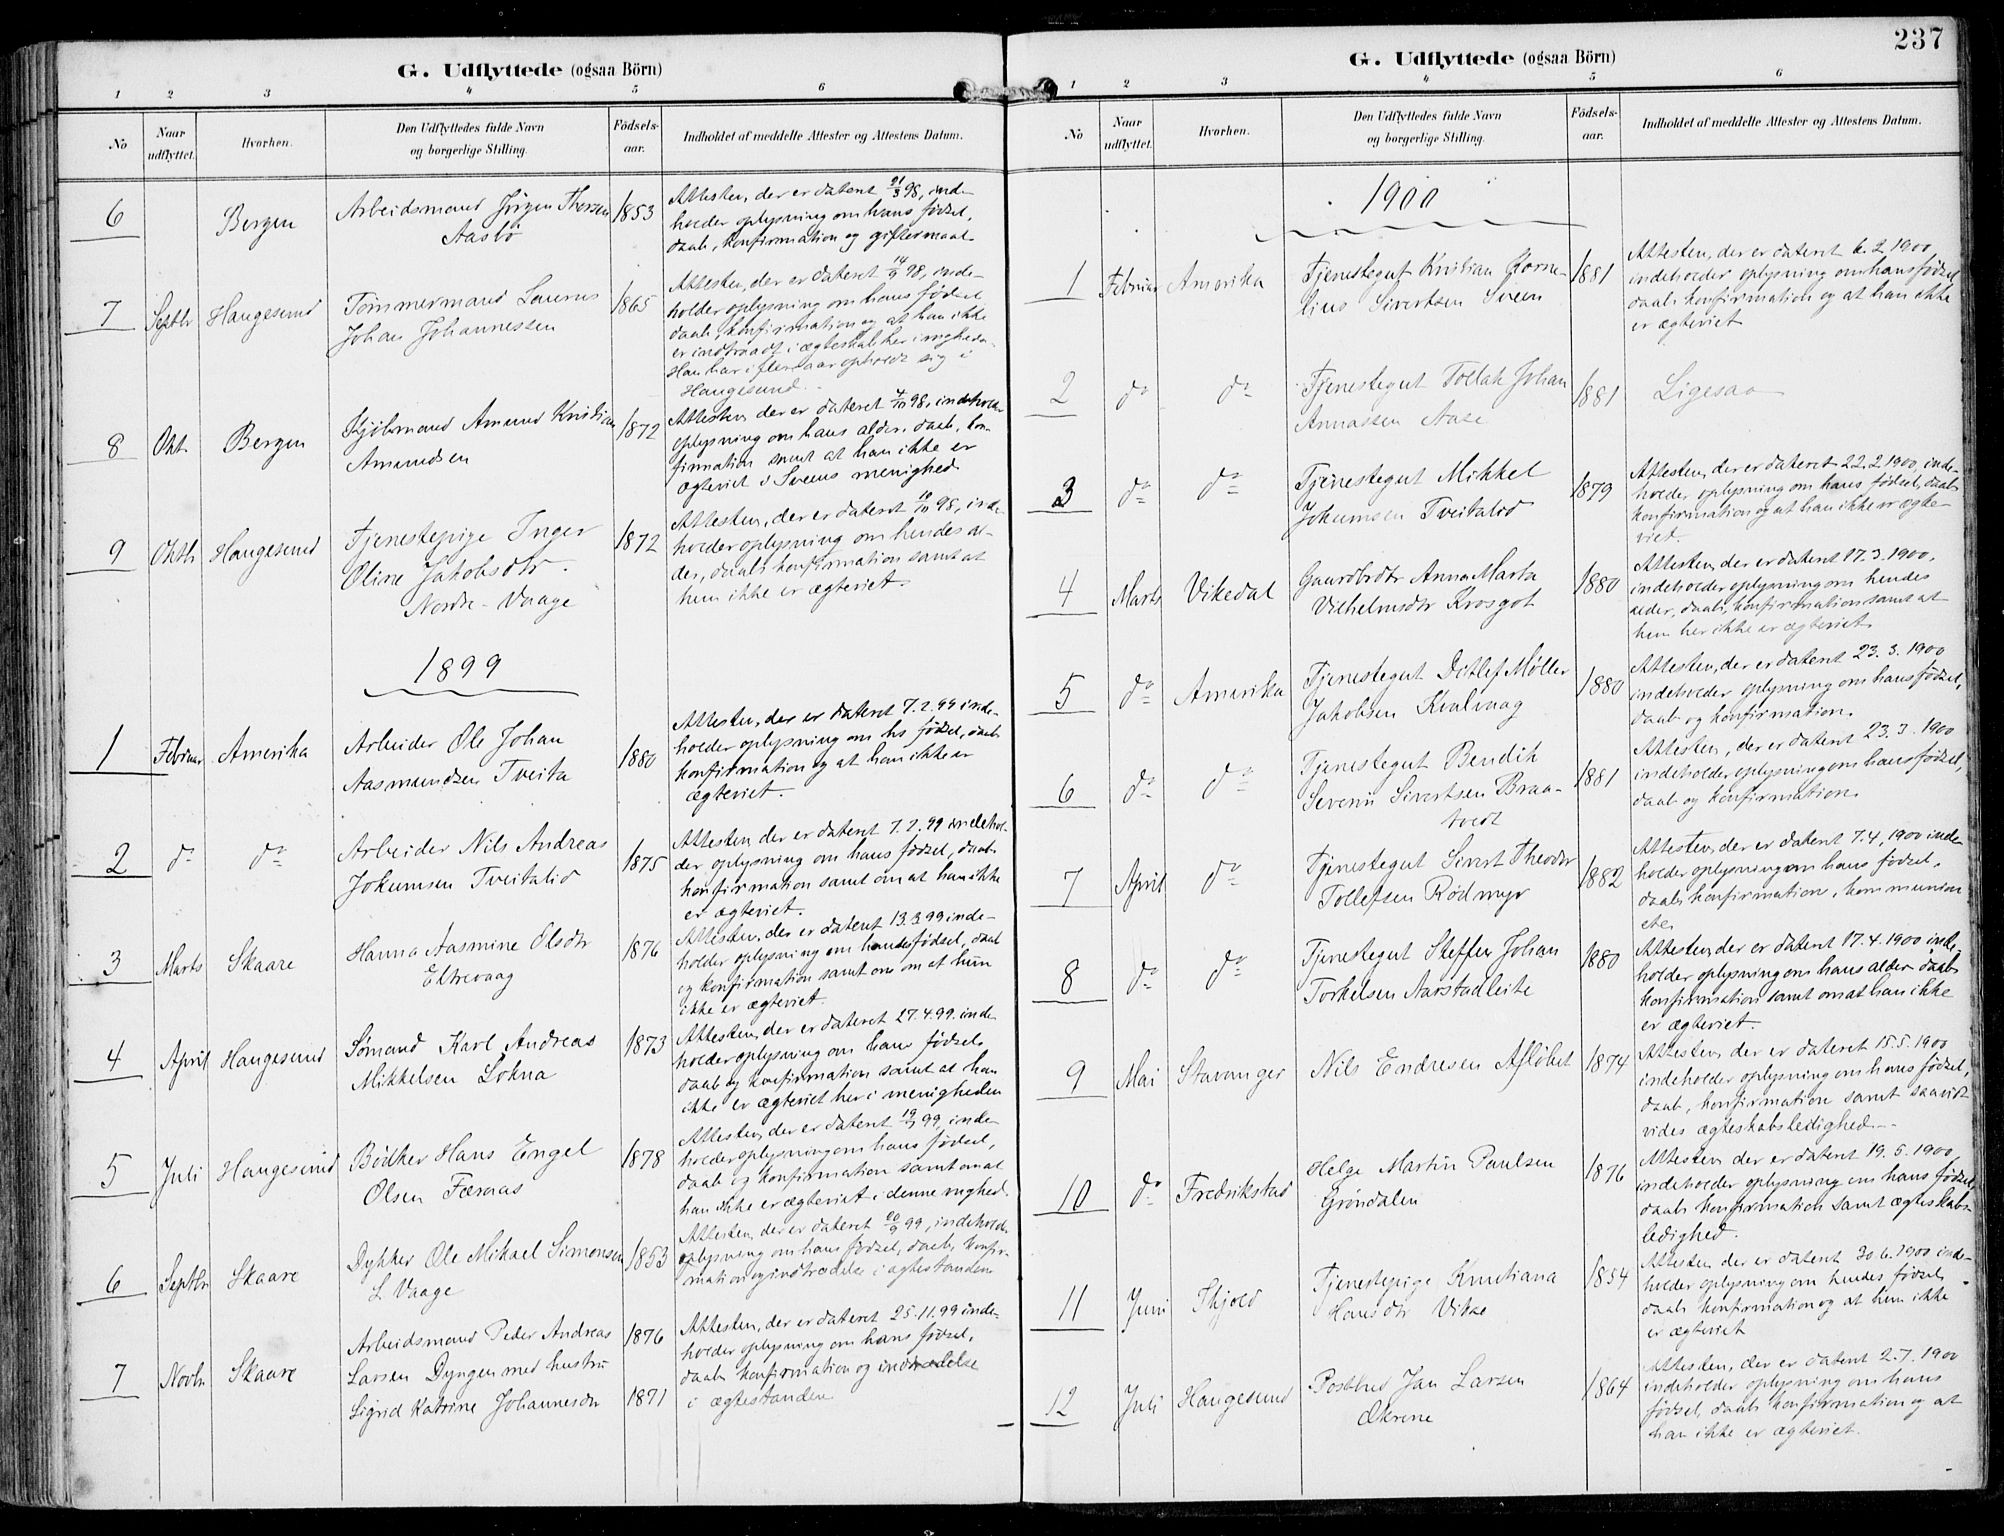 237
G. Udflyttede (ogsaa Börn)
1 2 3 4 5 6
No
Naar
udflyttet.
Hvorhen.
Den Udflyttedes fulde Navn
og borgerlige Stilling.
Födsels-
aar.
Indholdet af meddelte Attester og Attestens Datum.
6 Bergen
Arbeidsmand Jörgen Thorsen
Aasbö
1853
Attesten, der er dateret 21/3 98, inde-
holder oplysning om hans fødsel,
daab, konfirmation og giftermaal
7 Septbr Haugesund
Tømmermand Laurus
Johan Johannessen
1865
Attesten, der er dateret 14/9 98, inde-
holder oplysning om hans fødsel,
daab, konfirmation og at han ikke
er indtraadt i ægteskab her i mghedn.
Han har i flere aar opholdt sig i
Haugesund.
8 Okt. Bergen
Kjøbmand Amund Kristian
Amundsen
1872
Attesten, der er dateret 4/10 98, indeholder
oplysning om hans alder, daab, kon-
firmation samt at han ikke er
ægteviet i Sveens menighed
9 Oktb Haugesund
Tjenestepige Inger
Oline Jakobsdtr.
Nordre-Vaage
1872
Attesten, der er dateret 10/10 98, inde-
holder oplysning om hendes al-
der, daab, konfirmation samt at
hun ikke er ægteviet.
1899
1 Februar Amerika
Arbeider Ole Johan
Aasmundsen Tveita
1880
Attesten, der er dateret 7.2.99 inde-
holder oplysning om hs fødsel, daab
konfirmation og at han ikke er
ægteviet.
2 do do
Arbeider Nils Andreas
Jokumsen Tveitalid
1875
Attesten, der er dateret 7.2.99 indehol-
der oplysning om hans fødsel, daab
konfirmation samt om at han ikke
er ægteviet.
3 Marts Skaare
Hanna Aasmine Olsdtr
Eltrevaag
1876
Attesten, der er dateret 13.3.99 inde-
holder oplysning om hendes fødsel, daab
og konfirmation samt om at hun
ikke er ægteviet.
4 April Haugesund
Sømand Karl Andreas
Mikkelsen Lokna
1873
Attesten, der er dateret 27.4.99. inde-
holder oplysning om hans fødsel
daab og konfirmation samt at han
ikke er ægteviet her i menigheden
5 Juli Haugesund
Bødker Hans Engel
Olsen Færaas
1878
Attesten, der er dateret 19/7 99, inde-
holder oplysning om hans fødsel,
daab og konfirmation samt om at
han ikke er ægteviet i denne mghed.
6 Septbr Skaare
Dykker Ole Mikael Simonsen
L Vaage
1853
Attesten, der er dateret 20/9 99, indeholder
oplysning om hans fødsel, daab, konfir-
mation og indtrædelse i ægtestanden
7 Novbr Skaare
Arbeidsmand Peder Andreas
Larsen Dyngen med hustru
Sigrid Katrine Johannesdtr
1876
1871
Attesten, der er dateret 25.11.99 inde-
holder oplysning om hans fødsel,
daab konfirmation og indtrædelse
i ægtestanden
G. Udflyttede (ogsaa Börn)
1 2 3 4 5 6
No
Naar
udflyttet.
Hvorhen.
Den Udflyttedes fulde Navn
og borgerlige Stilling.
Födsels-
aar.
Indholdet af meddelte Attester og Attestens Datum.
1900
1 Februar Amerika
Tjenestegut Kristian Korne-
lius Sivertsen Sveen
1881
Attesten, der er dateret 6.2.1900
indeholder oplysning om hans fødsel,
daab konfirmation og at han ikke
er ægteviet
2 do do
Tjenestegut Tollak Johan
Annassen Aase
1881
Ligesaa
3 do do
Tjenestegut Mikkel
Jokumsen Tveitalid
1879
Attesten, der er dateret 22.2.1900, inde-
holder oplysning om hans fødsel, daab
konfirmation og at han ikke er ægte-
viet.
4 Marts Vikedal
Gaardbrdtr Anna Marta
Vilhelmsdtr Krosgot
1880
Attesten, der er dateret 17.3.1900,
indeholder oplysning om hendes
alder, daab, konfirmation samt at
hun her ikke er ægteviet.
5 do Amerika
Tjenestegut Ditlef Møller
Jakobsen Kvalvaag
1880
Attesten, der er dateret 23.3.1900
indeholder oplysning om hans fødsel,
daab og konfirmation.
6 do do
Tjenestegut Bendik
Severin Sivertsen Braa-
tvedt
1881
Attesten, der er dateret 23.3.1900
indeholder oplysning om hans fødsel,
daab og konfirmation.
7 April do
Tjenestegut Sivert Theodor
Tollefsen Rødmyr
1882
Attesten, der er dateret 7.4.1900 inde-
holder oplysning om hans fødsel,
daab konfirmation, kommunion
etc.
8 do do
Tjenestegut Steffen Johan
Torkelsen Aarstadleite
1880
Attesten, der er dateret 17.4.1900 inde-
holder oplysning om hans alder daab
konfirmation samt om at han ikke
er ægteviet.
9 Mai Stavanger
Nils Endresen Afløbet
1874
Attesten, der er dateret 15.5.1900
indeholder oplysning om hans fødsel,
daab, konfirmation samt saavidt
vides ægteskabsledighed.
10 do Fredrikstad
Helge Martin Paulsen
Grøndalen
1876
Attesten, der er dateret 19.5.1900,
indeholder oplysning om hans fødsel,
daab konfirmation samt ægteskabs-
ledighed.
11 Juni Skjold
Tjenestepige Knutiana
Hansdtr Vikse
1854
Attesten, der er dateret 30.6.1900 inde-
holder oplysning om hendes fødsel,
daab konfirmation og at hun ikke
er ægteviet
12 Juli Haugesund
Postbud Jan Larsen
Økrene
1864
Attesten, der er dateret 2.7.1900
indeholder oplysning om hans
fødsel, daab konfirmation og at
han ikke er ægteviet.